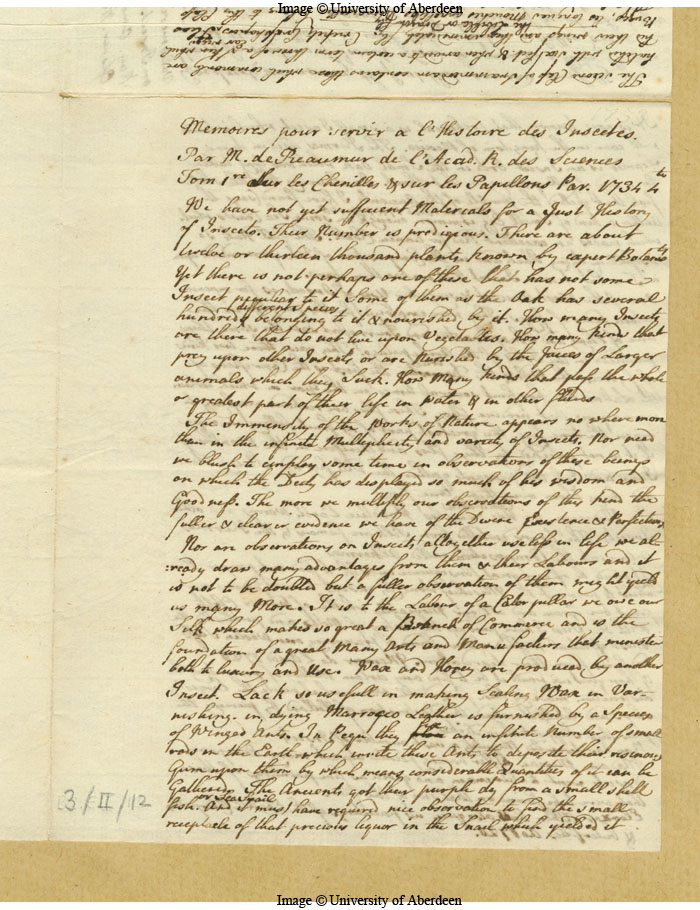 Image © University of Aberdeen
The second Class of
Memoires pour servir a l'Histoire des Insectes.
Par M. de Reaumur de l'Acad. R. des Sciences
Tom 1re Sur les Chenilles & sur les Papillons Par. 1734 4to
We have not yet sufficient Materials for a Just History
of Insects. Their Number is prodigious. There are about
twelve or thirteen thousand plants known by expert Botanists
Yet there is not perhaps one of these that has not some
Insect peculiar to it Some of them as the Oak has several
different species
hundreds belonging to it & nourished by it. How many Insects
are there that do not live upon Vegetables. How many kinds that
prey upon other Insects or are Nurished by the Juices of Larger
animals which they Suck. How Many kinds that pass the whole
or greatest part of their life in Water & in other fluids
The Immensity of the Works of Nature appears no where more
than in the infinite Multiplicity and variety of Insects. Nor need
we blush to employ some time in observations of these beings
on which the Deity has displayed so much of his wisdom and
Goodness. The more we multiply our observations of this kind the
fuller & clearer evidence we have of the Divine Existence & Perfections
Nor are observations on Insects altogether useless in life we al-
ready draw many advantages from them & their Labours and it
is not to be doubted but a fuller observation of them might yield
us many More. It is to the Labour of a Caterpillar we owe our
Silk which makes so great a Branch of Commerce and is the
foundation of a great Many Arts and Manufactures that minister
both to luxury and Use. Wax and Honey are produced by another
Insect. Lack so usefull in making Sealing Wax in Var-
nishing. in dying Marroco Leather is furnished by a Species
of Winged Ants. In Pegu they an infinite Number of small
rods in the Earth which invite these Ants to deposite their resinous
Gum upon them by which means considerable Quantities of it can be
Gathered. The Ancients got their purple dy from a small shell
or Sea Snail
fish. And it must have required nice observation to find the small
receptacle of that precious liquor in the Snail which yielded it
3/II/12
Image © University of Aberdeen